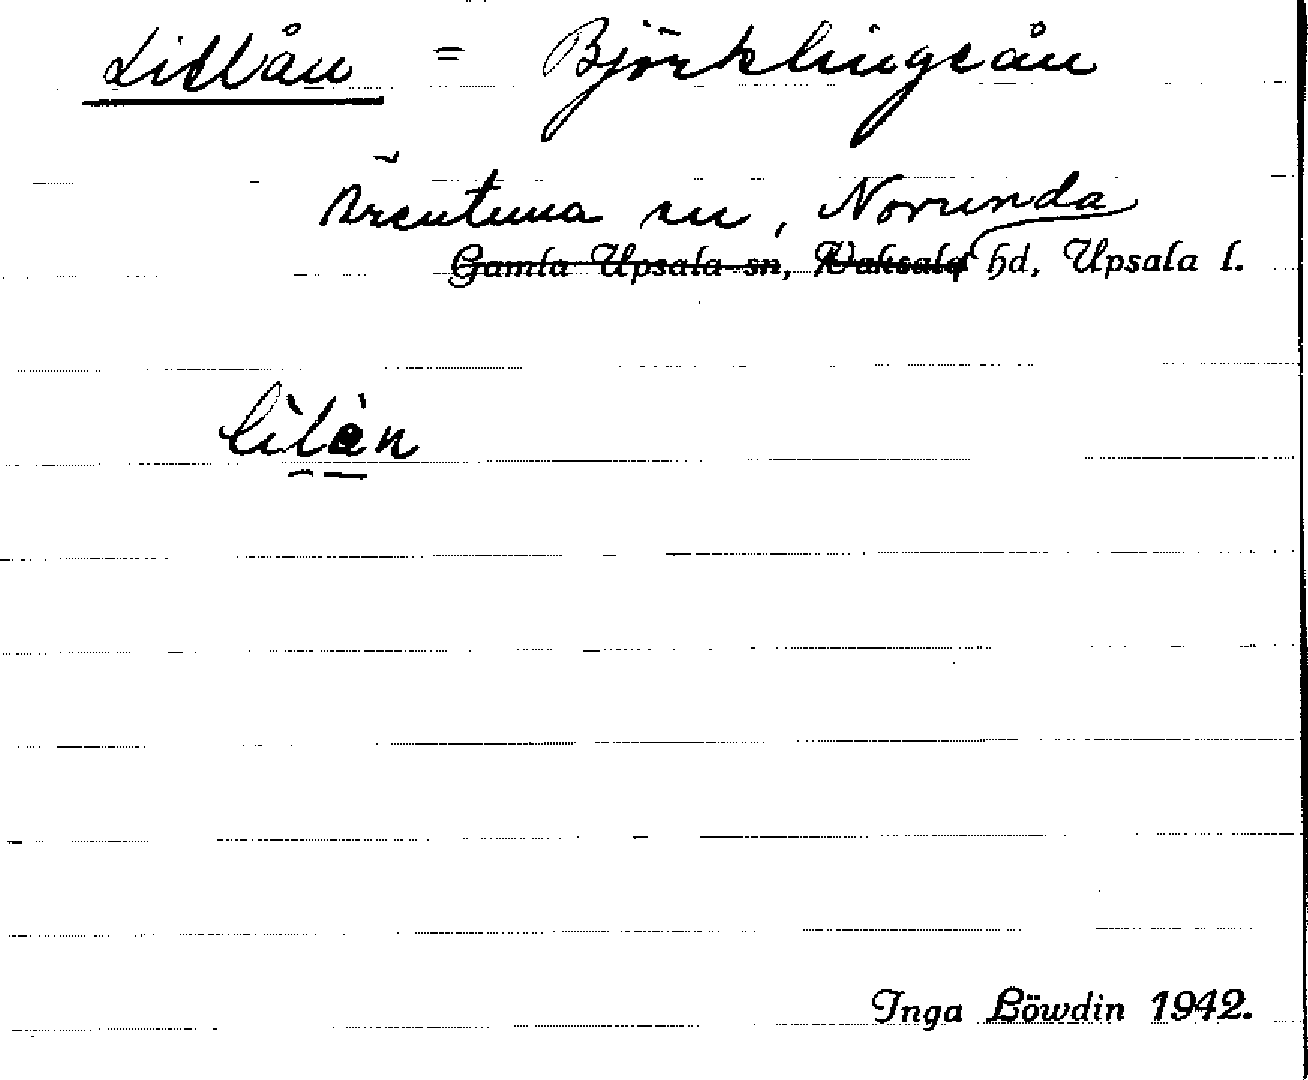 Lillån = Björklingeån
Ärentuna sn, Norunda
Gamla Upsala sn, Vaksala hd, Upsala l.
Inga Löwdin 1942.